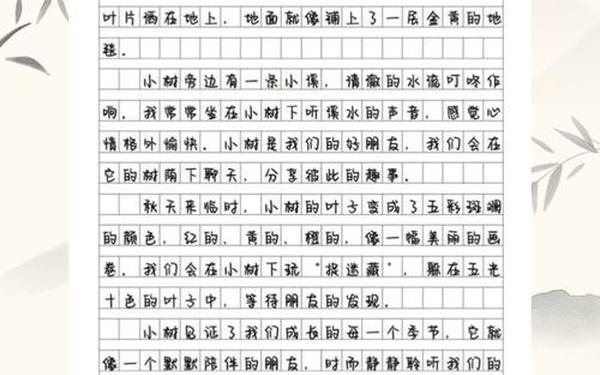 叶片洒在地上，地面就像铺上了一层金黄的地
毯。
小树旁边有一条小溪，清澈的水流叮咚作
响。我常常坐在小树下听溪水的声音，感觉心
情格外愉快。小树是我们的好朋友，我们会在
它的树荫下聊天，分享彼此的趣事。
秋天来临时，小树的叶子变成了五彩斑斓
的颜色，红的、黄的、橙的，像一幅美丽的画
卷。我们会在小树下玩“捉迷藏”，躲在五光
十色的叶子中，等待朋友的发现。
小树见证了我们成长的每一个季节，它就
像一个默默陪伴的朋友，时而静静聆听我们的